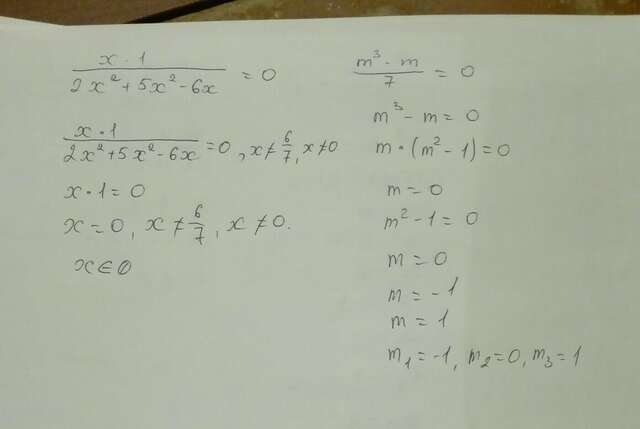 x · 1 / 2x² + 5x² - 6x = 0
x · 1 / 2x² + 5x² - 6x = 0, x ≠ 6/7, x ≠ 0
x · 1 = 0
x = 0, x ≠ 6/7, x ≠ 0.
x ∈ ∅
m³ - m / 7 = 0
m³ - m = 0
m · (m² - 1) = 0
m = 0
m² - 1 = 0
m = 0
m = -1
m = 1
m₁ = -1, m₂ = 0, m₃ = 1